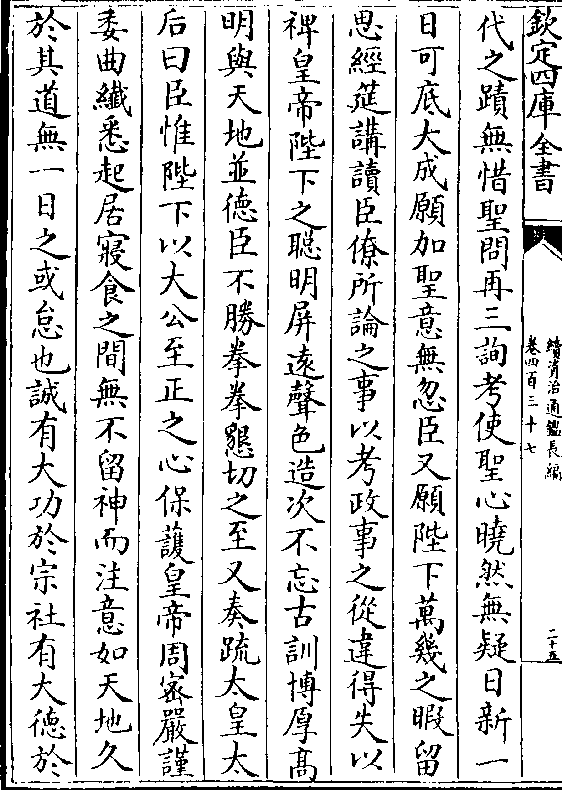 欽定四庫全書
續資治通鑑長編
卷四百三十七
二十五
代之蹟無惜聖問再三詢考使聖心曉然無疑日新一
日可底大成願加聖意無忽臣又願陛下萬幾之暇留
思經筵講讀臣僚所論之事以考政事之從違得失以
裨皇帝陛下之聰明屏遠聲色造次不忘古訓博厚高
明與天地並德臣不勝拳拳懇切之至又奏疏太皇太
后曰臣惟陛下以大公至正之心保護皇帝周宻嚴謹
委曲纖悉起居寢食之間無不留神而注意如天地久
於其道無一日之或怠也誠有大功於宗社有大德於